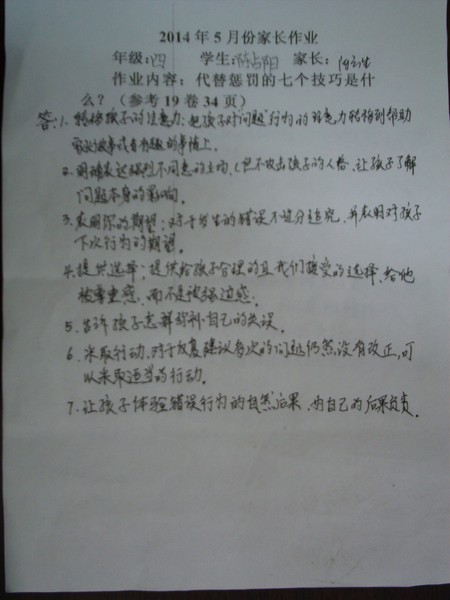 2014年5月份家长作业
年级:四 学生:陈占阳 家长:
作业内容：代替惩罚的七个技巧是什
么？（参考19卷34页）
答:1、转移孩子的注意力:把孩子对问题行为的注意力转移到帮助
家人做事或者有趣的事情上.
2.明确表达强烈不同意的立场,(但不攻击孩子的人格.让孩子了解
问题本身的影响.
3.表明你的期望:对于发生的错误不过分追究,并表明对孩子
下次行为的期望.
4.提供选择:提供给孩子合理的且我们接受的选择.给他
被尊重感,而不是被强迫感.
5.告诉孩子怎样弥补自己的失误.
6.采取行动.对于反复建议多次的问题仍然没有改正,可
以采取适当的行动.
7.让孩子体验错误行为的自然后果.为自己的后果负责.